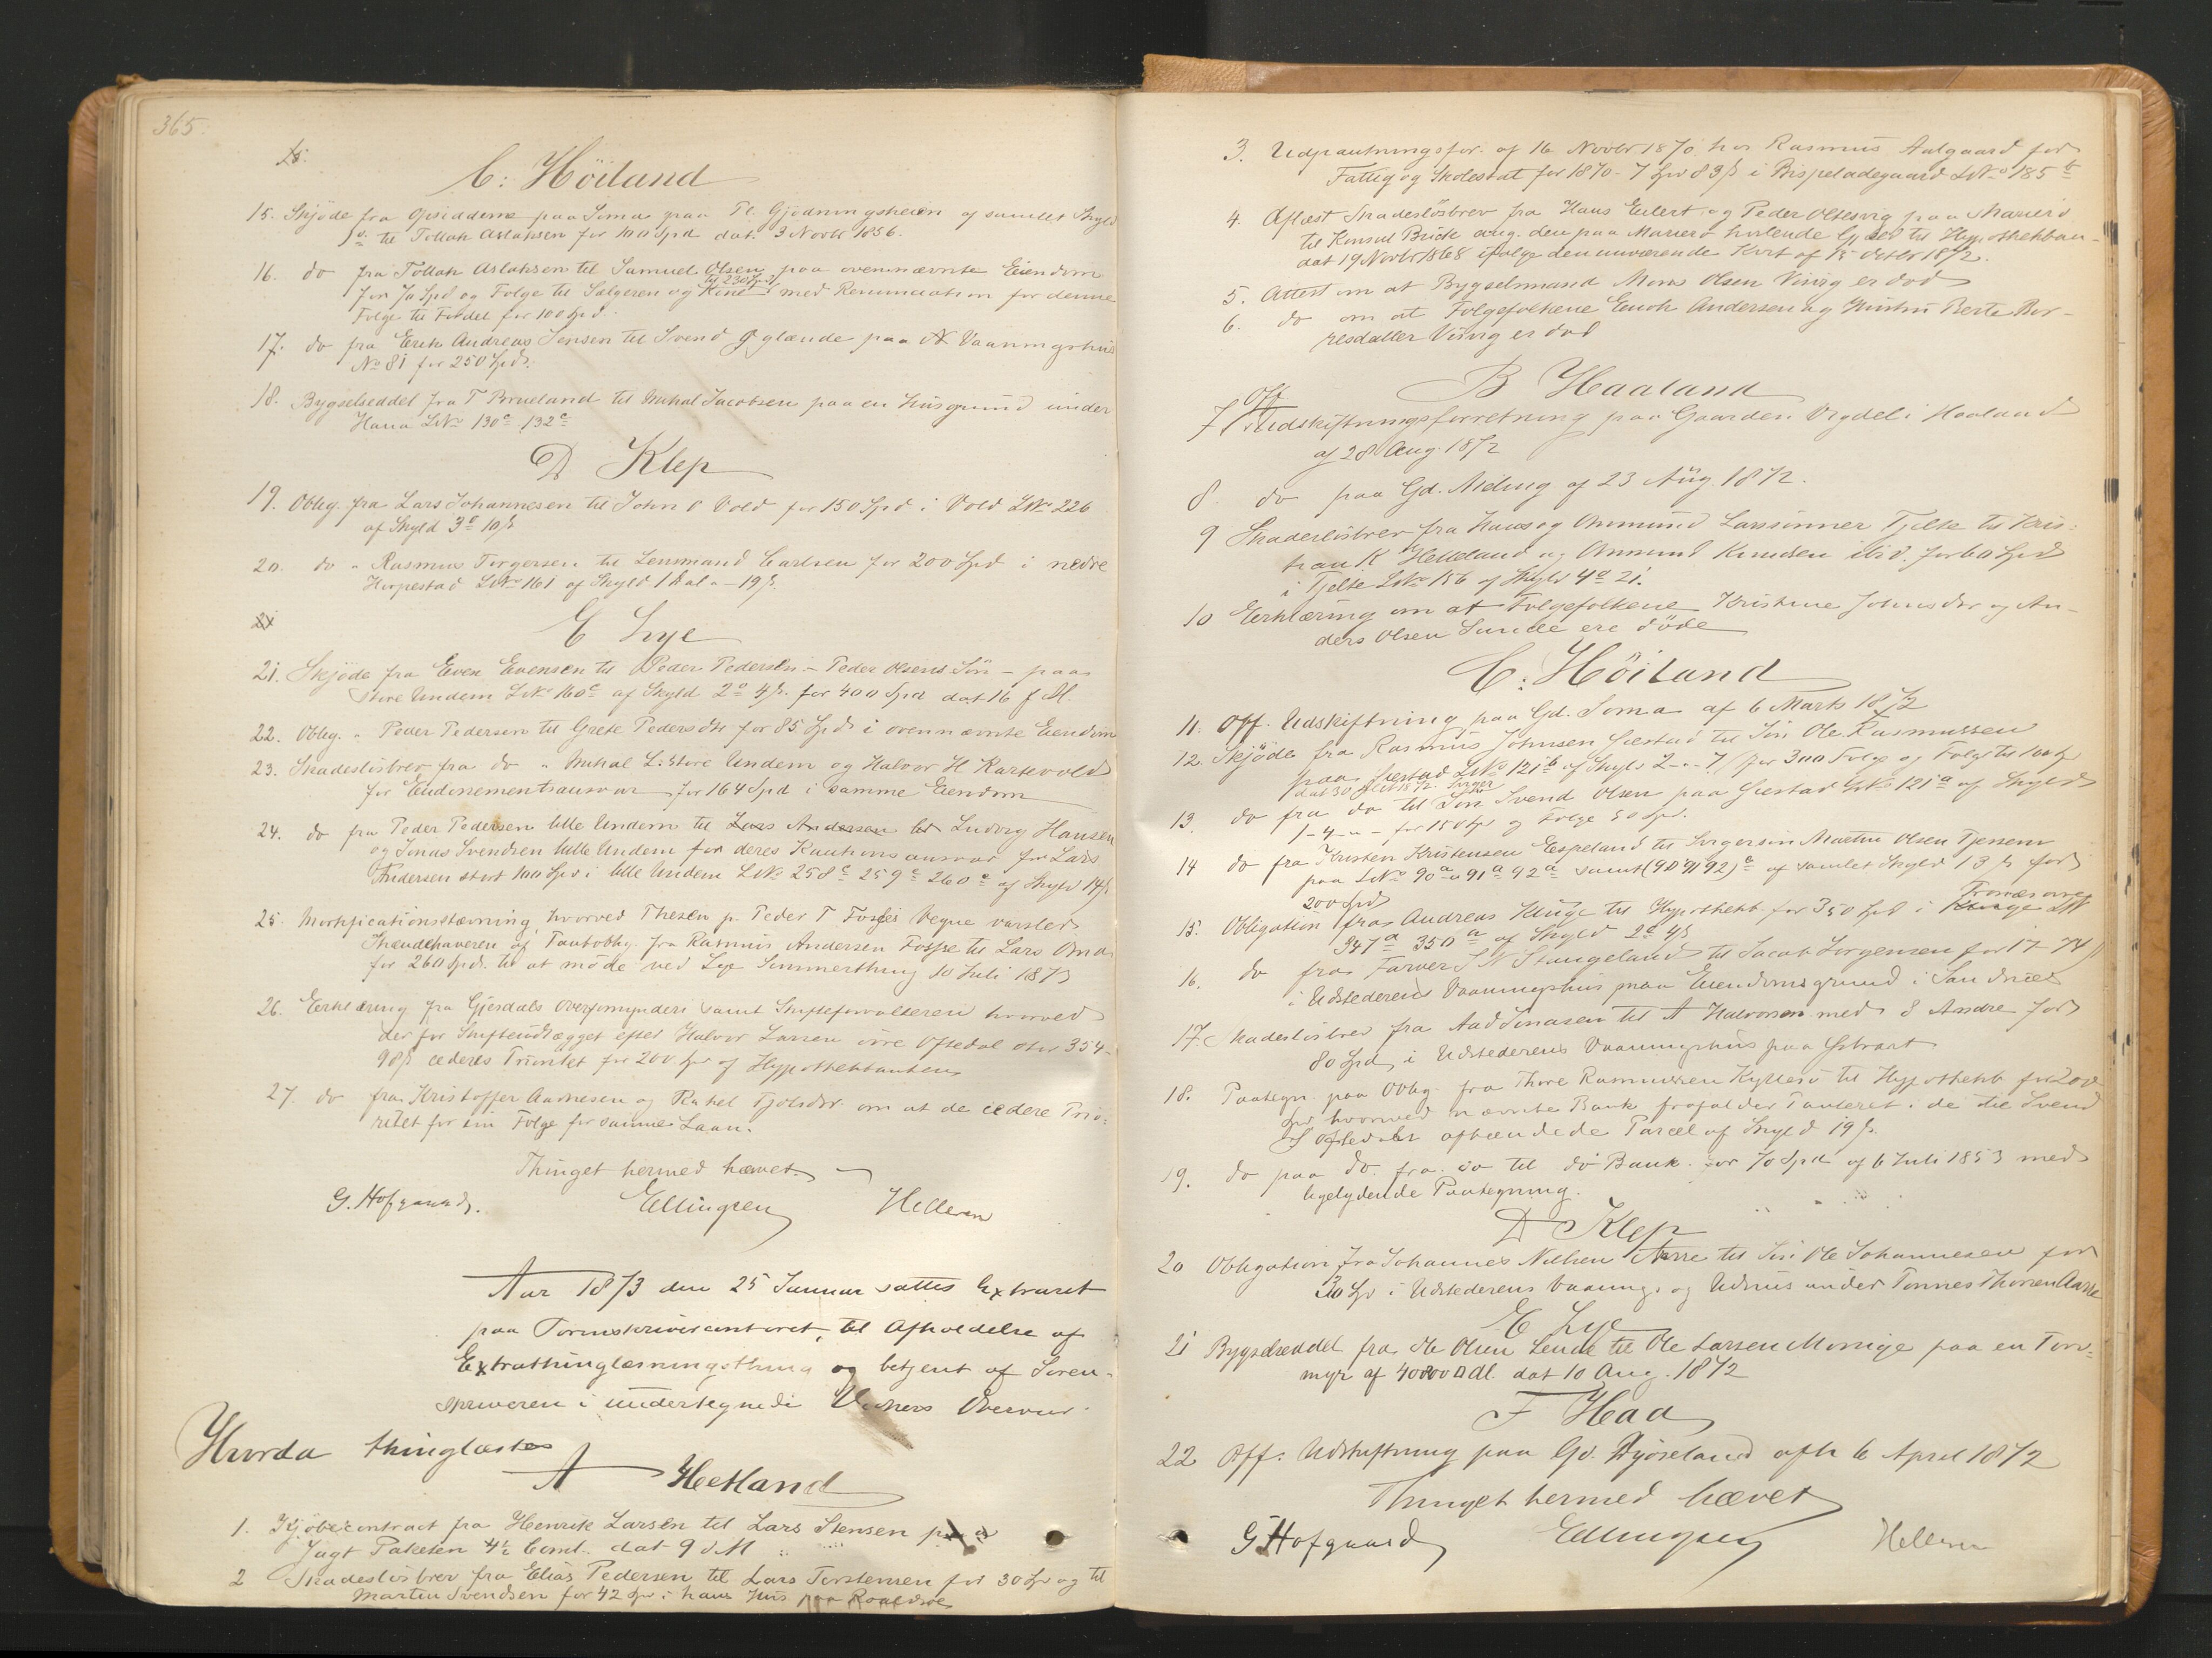 365.
C: Höiland
15. Skjøde fra Opsidderne paa Soma paa Pl. Gjedningsheien af samlet Skyld
til Tollak Aslaksen for 100 Spd dat. 3 Novbr 1856.
16. do fra Tollak Aslaksen til Samuel Olsen paa ovennævnte Eiendom
til 230 Spd
for 70 Spd og Folge til Sælgeren og Kone med Renunciation for denne
Folge til Fordel for 100 Spd.
17. do fra Erik Andreas Jensen til Svend Øglænde paa Vaaningshus
No 81 for 250 Spd.
18. Bygselseddel fra T Brueland til Mikal Jacobsen paa en Husgrund under
Hana LNo 130c 132c
D Klep
19. Oblig. fra Lars Johannesen til John O Vold for 150 Spd i Vold LNo 226
af Skyld 3o 10 s
20. do " Rasmus Torgersen til Lensmand Carlsen for 200 Spd i nedre
Horpestad LNo 161 af Skyld 1 Dal o - 19 s.
E Lye
21. Skjøde fra Even Evensen til Peder Pedersen - Peder Olsens Søn - paa
Store Undem LNo 160c af Skyld 2o 4 s. for 400 Spd dat 16 f. M.
22. Oblig. " Peder Pedersen til Grete Pedersdtr for 85 Spd i ovennævnte Eiendom
23. Skadesløsbrev fra do " Mikal L. Store Undem og Halvor H Kartevold
for Endossementsansvar for 164 Spd i samme Eiendom
24. do fra Peder Pedersen lille Undem til Lars Andersen Ludvig Hansen
og Jonas Svendsen lille Undem for deres Kautionsansvar for Lars
Andersen stort 100 Spd i lille Undem LNo 258c 259c 260c af Skyld 14 s
25. Mortificationsstævning, hvorved Thesen p. Peder T Fosses Vegne varsler
Ihændehaveren af Pantoblig. fra Rasmus Andersen Fosse til Lars Oma
for 260 Spd. til at møde ved Lye Sommerthing 10 Juli 1873
26. Erklæring fra Gjesdals Overformynderi samt Skifteforvalteren hvorved
der for Skifteudlægget efter Halvor Larsen øvre Oftedal stor 354-
98 s cederes Prioritet for 200 Spd af Hypothekbanken
27. do fra Kristoffer Aadnesen og Rakel Tjølsdtr. om at de cedere Prio-
ritet for sin Folge for samme Laan.
Thinget hermed hævet.
G. Hofgaard. Ellingsen Helleren
Aar 1873 den 25 Januar sattes Extraret
paa Sorenskrivercontoret, til Afholdelse af
Extrathinglæsningsthing og betjent af Soren-
skriveren i undertegnede Vidners Overvær
Hvorda thinglæstes
A Hetland
1. Kjøbecontract fra Henrik Larsen til Lars Stensen paa
Jagt Paketen 4½ Coml. dat 9 d. M
2 Skadesløsbrev fra Elias Pedersen til Lars Torstensen for 30 Spd og til
Martin Svendsen for 42 Spd i hans Hus paa Roaldsø
3. Udpantningsfor. af 16 Novbr 1870 hos Rasmus Aalgaard for
Fattig og Skoleskat for 1870 - 7 Spd 83 s i Bispeladegaard LNo 185b
4. Aflæst Skadesløsbrev fra Hans Eilert og Peder Oltesvig paa Marierö
til Konsul Brick ang. den paa Marierö heftende Gjæld til Hypothekban-
dat 19 Novbr 1868 ifølge denneværende Kvit af 15 Octbr 1872.
5. Attest om at Bygselsmand Mons Olsen Viiny er död
6. do om at Folgefolkene Enok Andersen og Hustru Berte Bor-
resdatter Viiny er död
B Haaland
7 Off. Udskiftningsforretning paa Gaarden Vigdel i Haaland
af 28 Aug. 1872
8. do paa Gd. Meling af 23 Aug. 1872.
9 Skadesløsbrev fra Hans og Ommund Larssønner Tjelte til Kris-
tian K Helleland og Ommund Knudsen ibid. for 60 Spd
i Tjelte LNo 156 af Skyld 4o 21.
10 Erklæring om at Folgefolkene Kristine Johnsdtr og An-
ders Olsen Sunde ere döde
C: Höiland
11. Off. Udskiftning paa Gd. Soma af 6 Marts 1872
12. Skjöde fra Rasmus Johnsen Gjestad til Sön Ole Rasmussen
paa Gjestad LNo 121b af Skyld 2 - o - 7 for 300 Folge og Folge til 100 s
13. do fra do til Sön Svend Olsen paa Gjestad LNo 121a af Skyld
1-4-o- for 150 Spd og Folge 50 Spd.
14 do fra Kristen Kristensen Espeland til Svigersön Martin Olsen Tjessem
paa LNo 90a 91a 92a samt (90 91 92)c af samlet Skyld 18 s for
200 Spd
15. Obligation fra Andreas Kluge til Hypothekb for 350 Spd i
347a 350a af Skyld 2o 4 s
16. do fra Farver S N Stangeland til Jacob Jørgensen for 17-74 s
i Udstederens Vaaningshus paa Eiendomsgrund i Sandnæs
17 Skadesløsbrev fra Aad Jonasen til A Halvorsen med 3 Andre for
80 Spd i Udstederens Vaaningshus paa Østraat
18. Paategn. paa Oblig. fra Thore Rasmussen Kyllesö til Hypothekb for 200
Spd hvorved nævnte Bank frafalder Panteret i de til Svend
S Oftedal afhændede Parcel af Skyld 19 s.
19. do paa do. fra do til do Bank for 70 Spd af 6 Juli 1853 med
ligelydende Paategning.
D Klep
20 Obligation fra Johannes Nielsen Aarre til Sön Ole Johannesen for
30 Spd i Udstederens Vaaning og Udhus under Tönnes Thorsen Aarre
E Lye
21 Bygselseddel fra Ole Olsen Lende til Ole Larsen Mossige paa en Torv-
myr af 40000 □ Al. dat 10 Aug. 1872
F Haa
22 Off. Udskiftning paa Gd. Njöseland afh 6 April 1872
Thinget hermed hævet
G Hofgaard Ellingsen Helleren